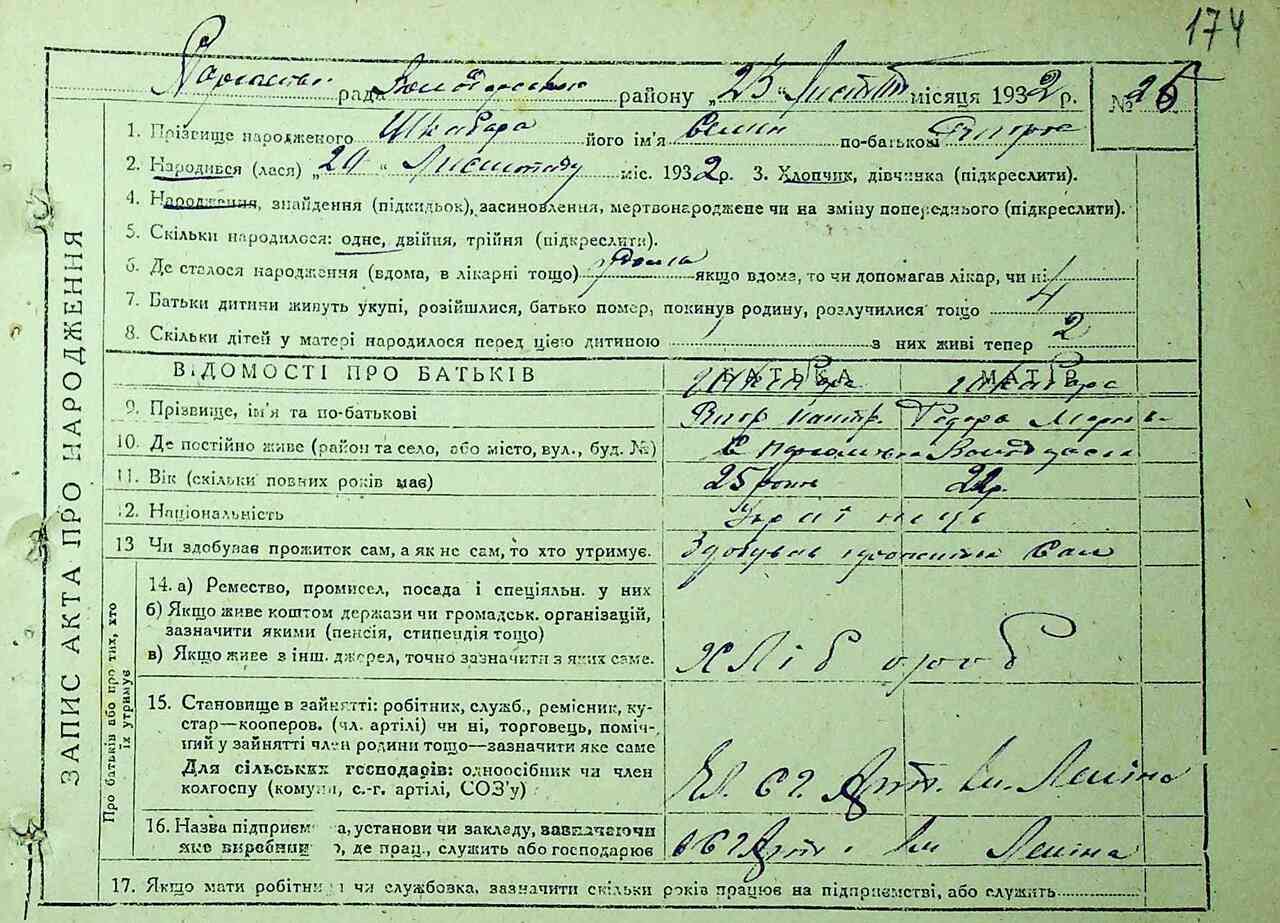 174
рада Володарського району „23" Листоп місяця 1932 р. № 26
1. Прізвище народженого Шкабара його ім'я Семен по-батькові
2. Народився (лася) „20" Листопаду міс. 1932 р. 3. Хлопчик, дівчинка (підкреслити).
4. Народження, знайдення (підкидьок), засиновлення, мертвонароджене чи на зміну попереднього (підкреслити).
5. Скільки народилося: одне, двійня, трійня (підкреслити).
6. Де сталося народження (вдома, в лікарні тощо) вдома якщо вдома, то чи допомагав лікар, чи ні
7. Батьки дитини живуть укупі, розійшлися, батько помер, покинув родину, розлучилися тощо
8. Скільки дітей у матері народилося перед цією дитиною з них живі тепер 2
ВІДОМОСТІ ПРО БАТЬКІВ БАТЬКА МАТІР
Шкабара Шкабара
9. Прізвище, ім'я та по-батькові
10. Де постійно живе (район та село, або місто, вул., буд. №)
11. Вік (скільки повних років має) 25 22 р.
12. Національність Українець
13 Чи здобував прожиток сам, а як не сам, то хто утримує. Здобував сам
Про батьків або про тих, хто їх утримує
14. а) Ремество, промисел, посада і спеціяльн. у них
б) Якщо живе коштом держави чи громадськ. організацій,
зазначити якими (пенсія, стипендія тощо)
в) Якщо живе з інш. джерел, точно зазначити з яких саме. Хлібороб
15. Становище в зайнятті: робітник, служб., ремісник, ку-
стар—кооперов. (чл. артілі) чи ні, торговець, поміч-
ний у зайнятті член родини тощо—зазначити яке саме
Для сільських господарів: одноосібник чи член
колгоспу (комуни, с.-г. артілі, СОЗ'у) Чл. с г. Арт. Ім. Леніна
16. Назва підприєм а, установи чи закладу, зазначаючи
яке виробни о, де прац., служить або господарює с г Арт. Ім Леніна
17. Якщо мати робітни а чи службовка, зазначити скільки років працює на підприємстві, або служить
ЗАПИС АКТА ПРО НАРОДЖЕННЯ